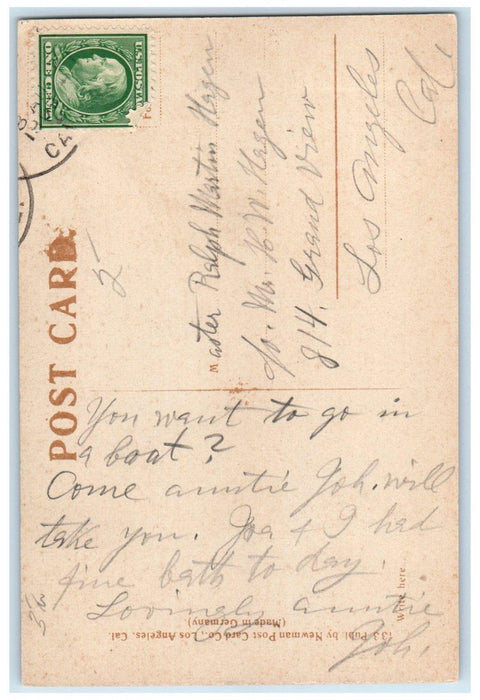 U.S. POSTAGE
ONE CENT
CAL
POST CARD
2
Master Ralph Martin Hagen
c/o. Mr. H. W. Hagen
814. Grand View
Los Angeles
Cal.
You want to go in
a boat?
Come auntie Joh. will
take you. Joa + I had
fine bath to day.
Lovingly auntie
Joh.
Write here
133 Publ by Newman Post Card Co., Los Angeles, Cal.
(Made in Germany)